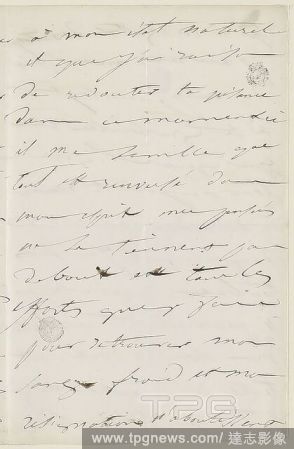 à mon état naturel
et que j'ai raison
de redouter ta présence
dans ce moment-ci
il me semble que
tout est renversé dans
mon esprit mes pensées
ne se tiennent pas
debout et tous les
efforts que je fais
pour retrouver mon
sang froid et ma
résignation n'aboutissent
TPG
www.tpgnews.com / 達志影像